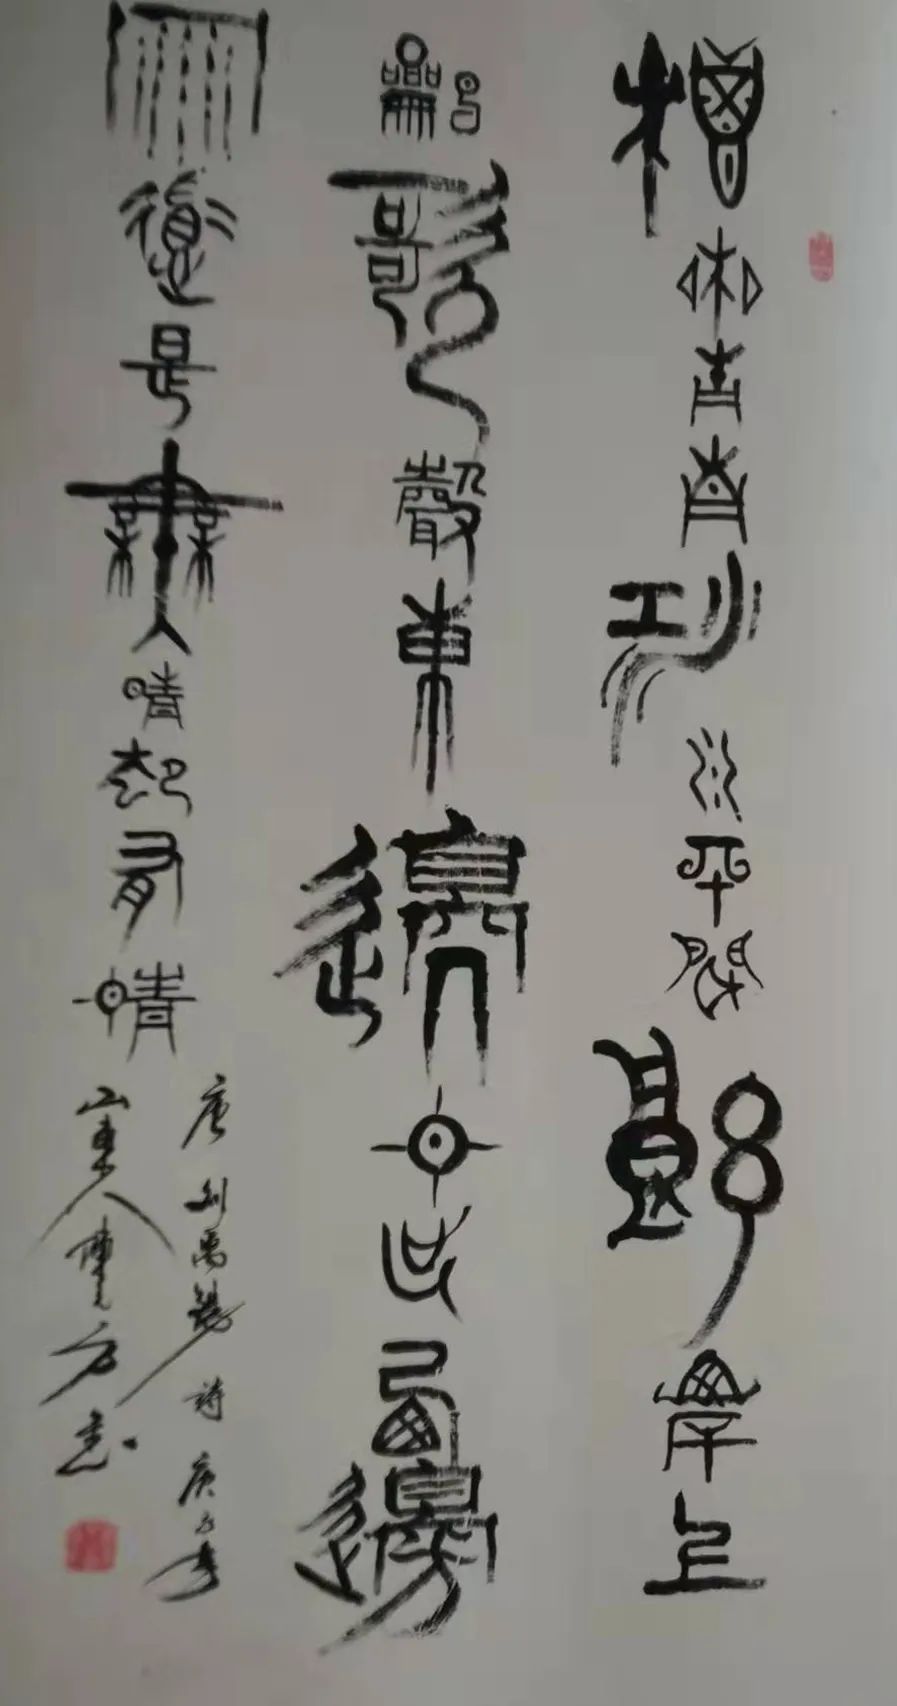 楊柳青青江水平聞郎岸上
唱歌聲東邊日出西邊
雨道是無晴卻有晴
唐刘禹錫詩庚子春
山東人